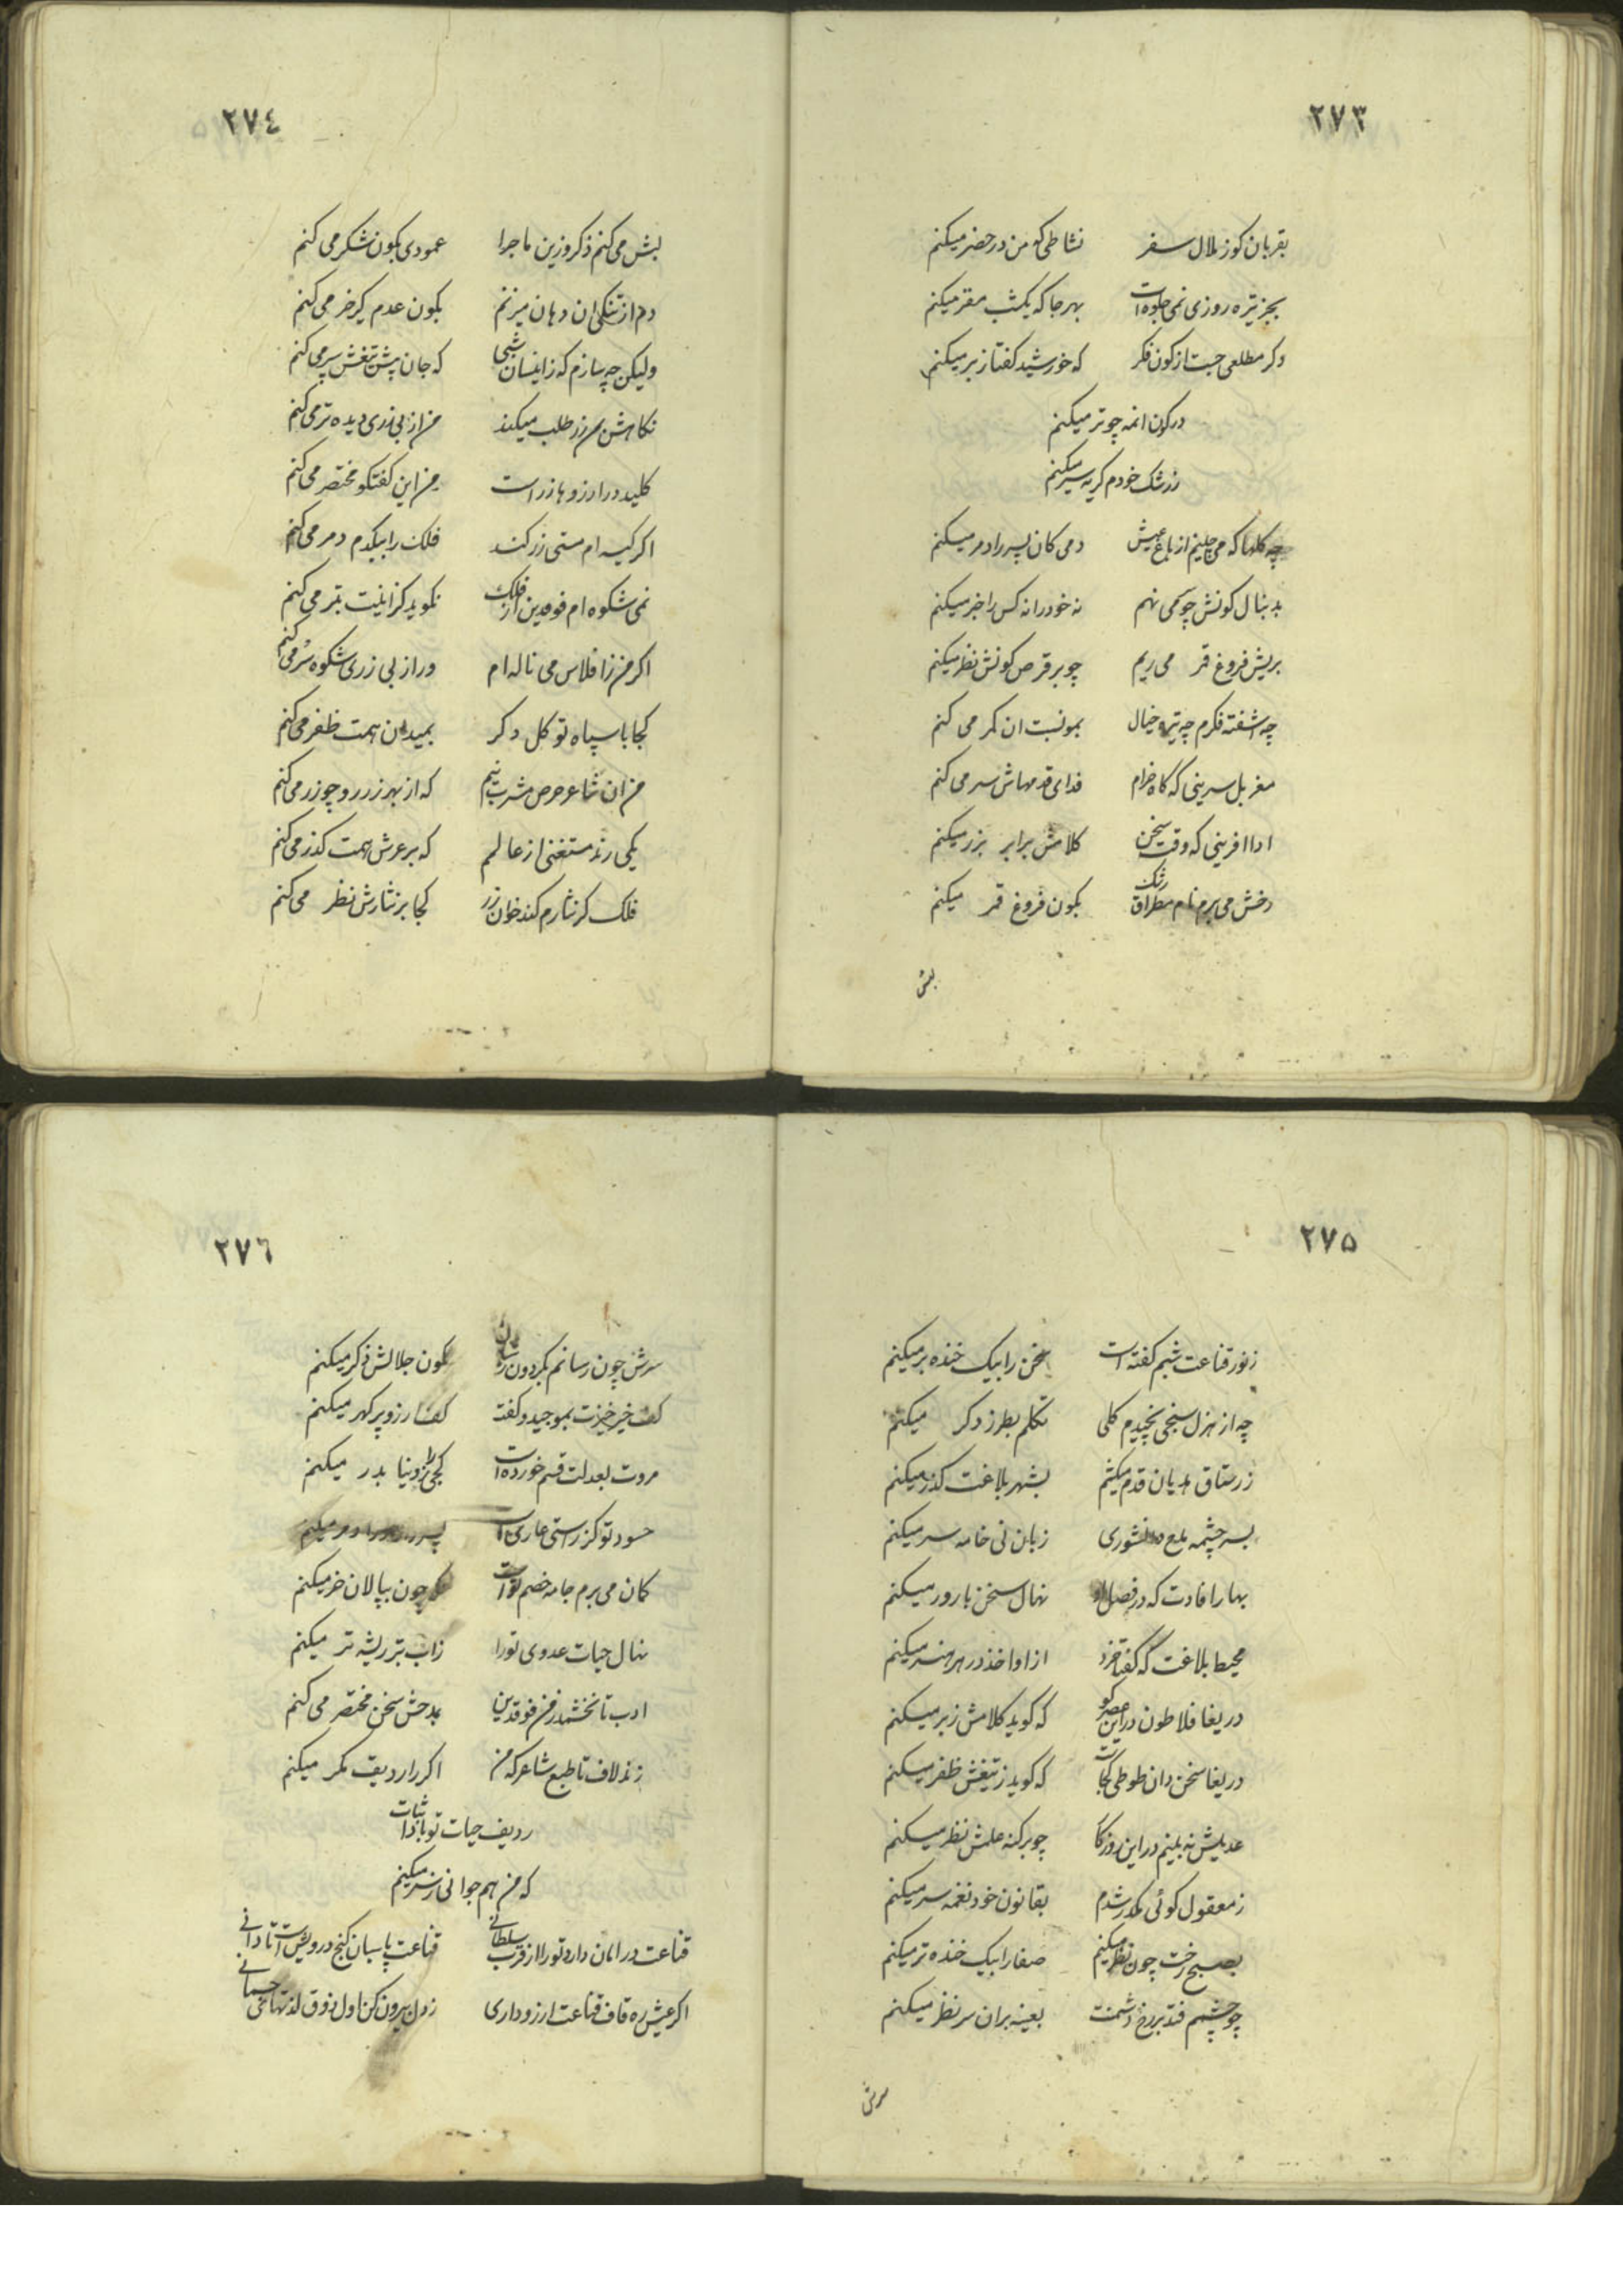 ٢٧٣
بقربان کوز ملال سفر نشاطی که من در حضر میکنم
بجز تیره روزی نمی جلوه است بهر جا که یکشب مقر میکنم
دکر مطلعی جست از کون فکر که خورشید کفتا زبر میکنم
در کون انمه چو تر میکنم
زرشک خودم کریه سر میکنم
چه کلها که می چلینم از باغ عیش دمی کان پسر را دمر میکنم
بدنبال کونش چو می نهم نه خود را نه کس را خبر میکنم
بریش فروغ قمر می ریم چو بر قرص کونش نظر میکنم
چه اشفته فکرم چه تیره خیال بمو نسبت ان کمر می کنم
مغربل سرینی که کاه خرام فدای قدمهاش سر می کنم
ادا افرینی که وقت سخن کلامش برابر بزر میکنم
دخش می برم نام رشک بکون فروغ قمر میکنم
بش
٢٧٤
بش می کنم ذکر وزین ماجرا عمودی بکون شکر می کنم
دم از تنکی ان دهان میزنم بکون عدم کیر خر می کنم
ولیکن چه سازم که زاینسان شبی که جان پیش تیغش سپر می کنم
نکاهش زر طلب میکند من از بی زری دیده تر می کنم
کلید در ارزوها زر است من این کفتکو مختصر می کنم
اکر کیسه ام مستی زر کند فلک را بیکدم دمر می کنم
نمی شکوه ام فوقدین از فلک نکوید کز اینت بتر می کنم
اکر من ز افلاس می ناله ام ور از بی زری شکوه سر می کنم
کجا با سپاه توکل دکر بمیدان همت ظفر می کنم
من ان شاعر حرص مشرب نیم که از بهر زر رو چو زر می کنم
یکی رند مستغنی از عالم که بر عرش همت کذر می کنم
فلک کر نثارم کند خوان زر کجا بر نثارش نظر می کنم
٢٧٥
ز نور قناعت شبم کفته است سخن را بیک خنده بر میکنم
چه از هزل سنجی نچیدم کلی تکلم بطرز دکر میکنم
ز رستاق هذیان قدم میکشم بشهر بلاغت کذر میکنم
بسر چشمه مدح دانشوری زبان نی خامه سر میکنم
بهار افادت که در فصل او نهال سخن بارور میکنم
محیط بلاغت که کفتا خرد از او اخذ در هر هنر میکنم
دریغا فلاطون در این عصر کو که کوید کلامش زبر میکنم
دریغا سخن دان طوطی کجاست که کوید ز تیغش ظفر میکنم
عدیلش نه بینم در این روزکار چو بر کنه علمش نظر میکنم
ز معقول کوئی مکدر شدم بقانون خود نغمه سر میکنم
بصبح رخت چون نظر میکنم صفا را بیک خنده تر میکنم
چو چشمم فتد بر رخ دشمنت بعینه بران سر نظر میکنم
سرش
٢٧٦
سرش چون رسانم بکردون ز شان بکون جلالش ذکر میکنم
کف خیر خیزت بموجید و کفت کف ارزو پر کهر میکنم
مروت بعدلت قسم خورده است کجی را ز دنیا بدر میکنم
حسود تو کز راستی عاری است پسر دمر میکنم
کمان می برم جامه خصم تو است چون بپالان خر میکنم
نهال حیات عدوی تو را ز اب تبر ریشه تر میکنم
ادب تا نخشمد ز من فوقدین بمدحش سخن مختصر می کنم
زند لاف تا طبع شاعر که من اکر را ردیف مکر میکنم
ردیف حیات تو بادا ثبات
که من هم جوانی ز سر میکنم
قناعت در امان دارد تو را از قرب سلطانی قناعت پاسبان کنج درویش است تا دانی
اکر عیش ره قاف قناعت ارزو داری ز دل بیرون کن اول ذوق لذتهای جسمانی